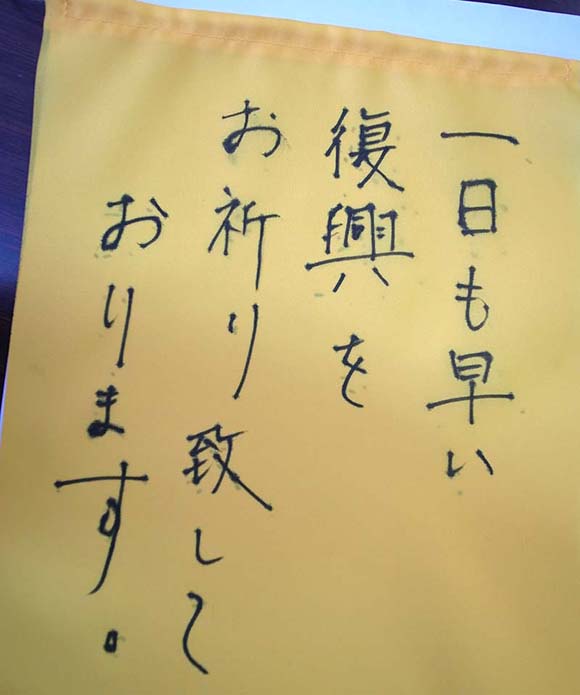 一日も早い
復興を
お祈り致して
おります.